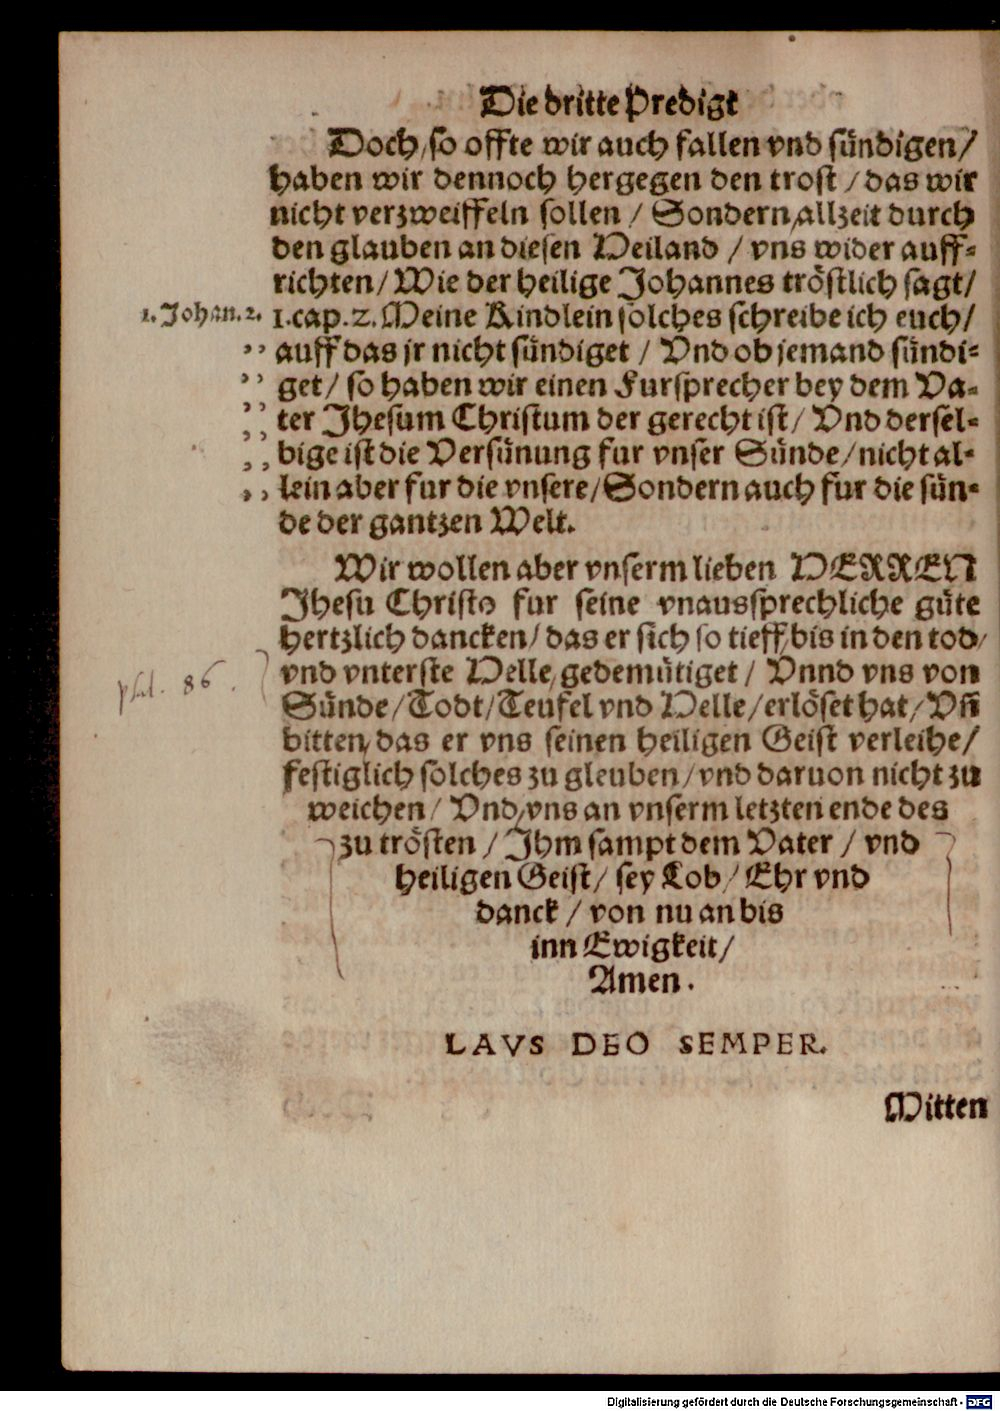 Die dritte Predigt
Doch, so offte wir auch fallen vnd sündigen/
haben wir dennoch hergegen den trost / das wir
nicht verzweiffeln sollen / Sondern, allzeit durch
den glauben an diesen Heiland / vns wider auff-
richten/ Wie der heilige Johannes tröstlich sagt/
1. Johan. 2. 1. cap. 2. Meine Kindlein solches schreibe ich euch/
,, auff das jr nicht sündiget / Vnd ob jemand sündi-
,, get/ so haben wir einen Fursprecher bey dem Va-
,, ter Jhesum Christum der gerecht ist/ Vnd dersel-
,, bige ist die Versünung fur vnser Sünde/ nicht al-
,, lein aber fur die vnsere/ Sondern auch fur die sün-
de der gantzen Welt.
Wir wollen aber vnserm lieben HERREN
Jhesu Christo fur seine vnaussprechliche güte
hertzlich dancken/ das er sich so tieff, bis in den tod/
vnd vnterste Helle, gedemütiget / Vnnd vns von
psal. 86.
Sünde/ Todt/ Teufel vnd Helle/ erlöset hat/ Vñ
bitten, das er vns seinen heiligen Geist verleihe/
festiglich solches zu gleuben/ vnd daruon nicht zu
weichen/ Vnd, vns an vnserm letzten ende des
zu trösten / Jhm sampt dem Vater / vnd
heiligen Geist/ sey Lob/ Ehr vnd
danck / von nu an bis
inn Ewigkeit/
Amen.
LAVS DEO SEMPER.
Mitten
Digitalisierung gefördert durch die Deutsche Forschungsgemeinschaft - DFG